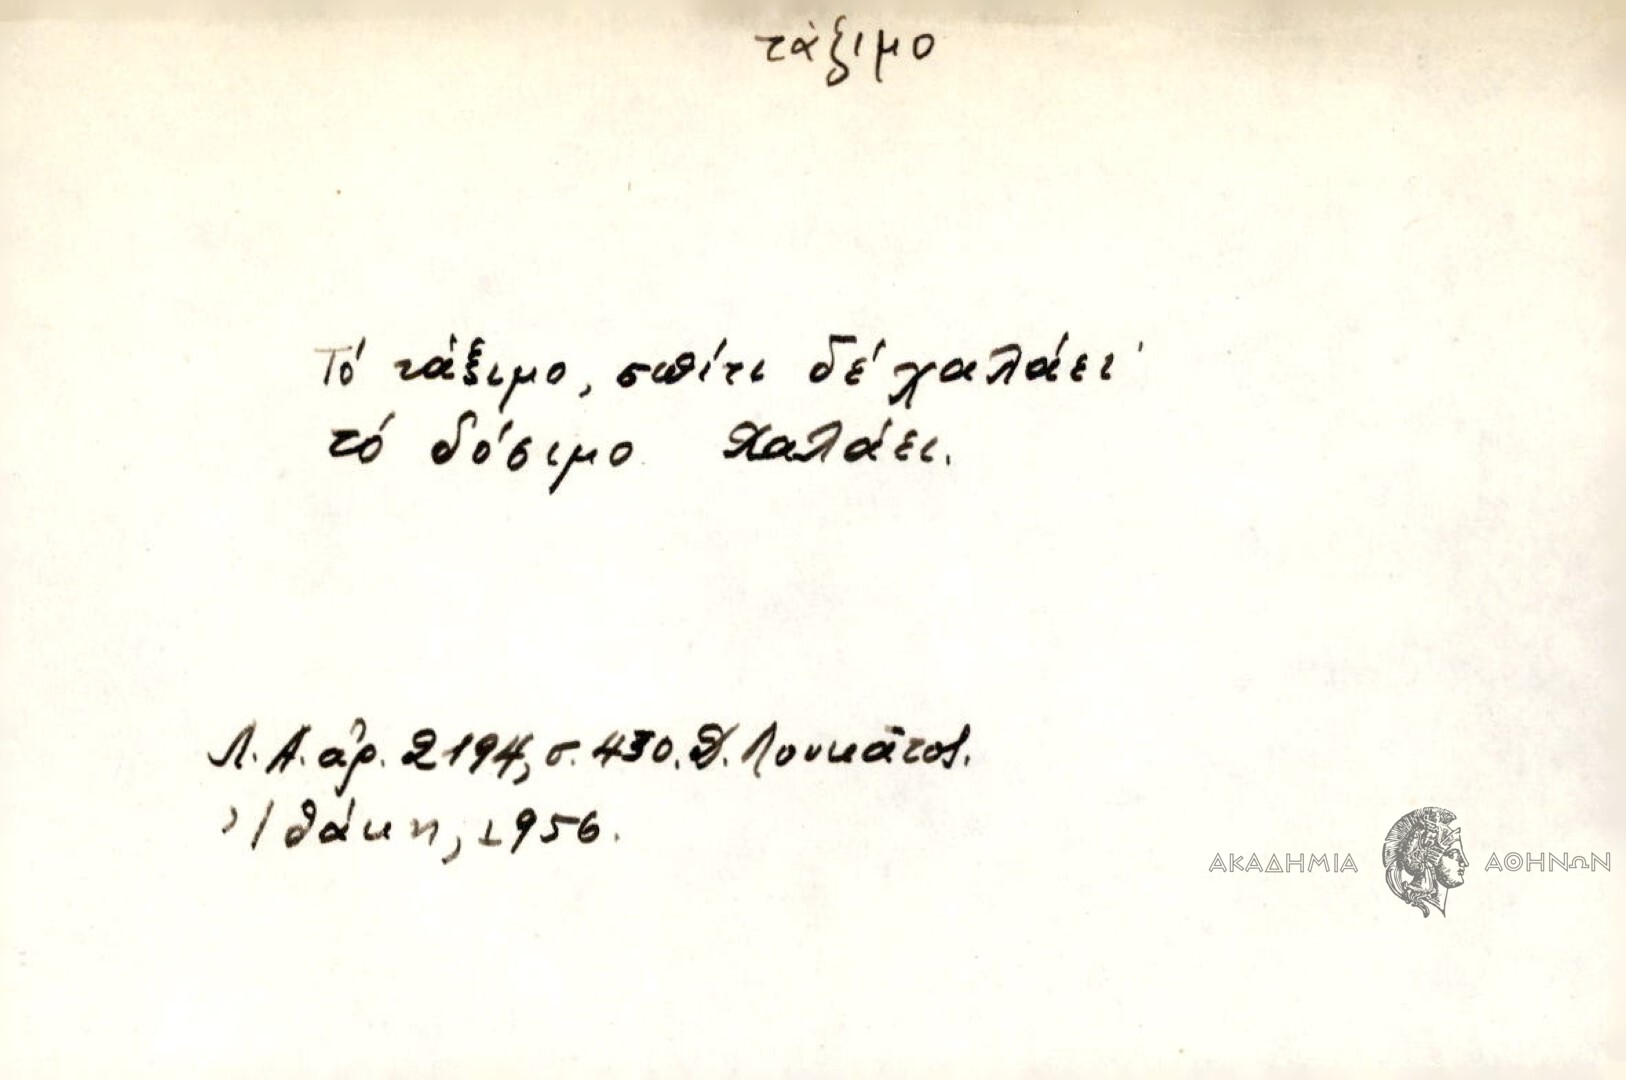 τάξιμο
Τό τάξιμο, σπίτι δέ χαλάει·
τό δόσιμο χαλάει.
Λ.Α. ἀρ. 2194, σ. 430. Δ. Λουκᾶτος.
Ἰθάκη, 1956.
ΑΚΑΔΗΜΙΑ ΑΘΗΝΩΝ